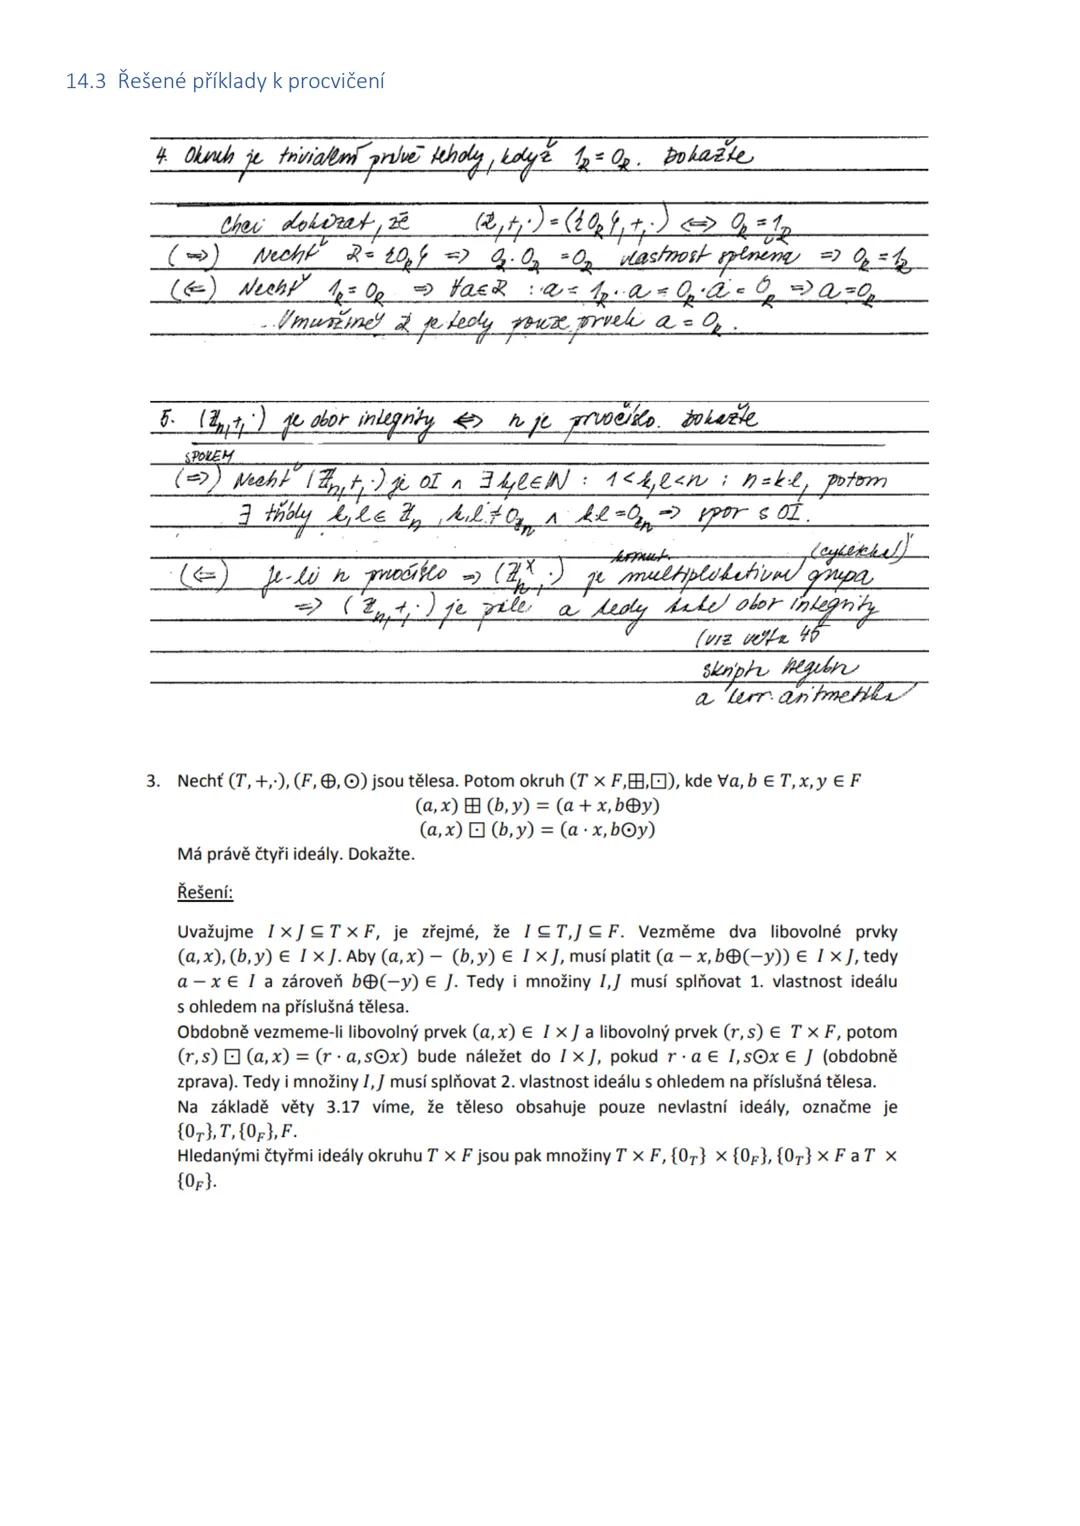 14.3 Řešené příklady k procvičení
4. Okruh je triviální právě tehdy, když 1_R = 0_R. Dokažte
Chci dokázat, že (R,+,·) = ({0_R},+,·) ⇔ 0_R = 1_R
(⇒) Nechť R = {0_R} ⇒ 0_R · 0_R = 0_R vlastnost splněna ⇒ 0_R = 1_R
(⇐) Nechť 1_R = 0_R ⇒ ∀a∈R : a = 1_R · a = 0_R · a = 0_R ⇒ a = 0_R
V množině R je tedy pouze prvek a = 0_R.
5. (ℤ_n,+,·) je obor integrity ⇔ n je prvočíslo. Dokažte
SPOREM
(⇒) Nechť (ℤ_n,+,·) je OI ∧ ∃ k,l∈ℕ : 1<k,l<n ; n=k·l, potom
∃ třídy k,l ∈ ℤ_n, k,l ≠ 0_ℤn ∧ k·l = 0_ℤn ⇒ spor s OI.
komut. (cyklická)
(⇐) Je-li n prvočíslo ⇒ (ℤ_n^×,·) je multiplikativní grupa
⇒ (ℤ_n,+,·) je pole a tedy také obor integrity
(viz věta 45
skripta Algebra
a teor. aritmetika
3. Nechť (T, +,·), (F,⊕,⊙) jsou tělesa. Potom okruh (T × F,⊞,⊡), kde ∀a, b ∈ T, x, y ∈ F
(a, x) ⊞ (b, y) = (a + x, b⊕y)
(a, x) ⊡ (b, y) = (a · x, b⊙y)
Má právě čtyři ideály. Dokažte.
Řešení:
Uvažujme I × J ⊆ T × F, je zřejmé, že I ⊆ T, J ⊆ F. Vezměme dva libovolné prvky
(a, x), (b, y) ∈ I × J. Aby (a, x) − (b, y) ∈ I × J, musí platit (a − x, b⊕(−y)) ∈ I × J, tedy
a − x ∈ I a zároveň b⊕(−y) ∈ J. Tedy i množiny I, J musí splňovat 1. vlastnost ideálu
s ohledem na příslušná tělesa.
Obdobně vezmeme-li libovolný prvek (a, x) ∈ I × J a libovolný prvek (r, s) ∈ T × F, potom
(r, s) ⊡ (a, x) = (r · a, s⊙x) bude náležet do I × J, pokud r · a ∈ I, s⊙x ∈ J (obdobně
zprava). Tedy i množiny I, J musí splňovat 2. vlastnost ideálu s ohledem na příslušná tělesa.
Na základě věty 3.17 víme, že těleso obsahuje pouze nevlastní ideály, označme je
{0_T}, T, {0_F}, F.
Hledanými čtyřmi ideály okruhu T × F jsou pak množiny T × F, {0_T} × {0_F}, {0_T} × F a T ×
{0_F}.